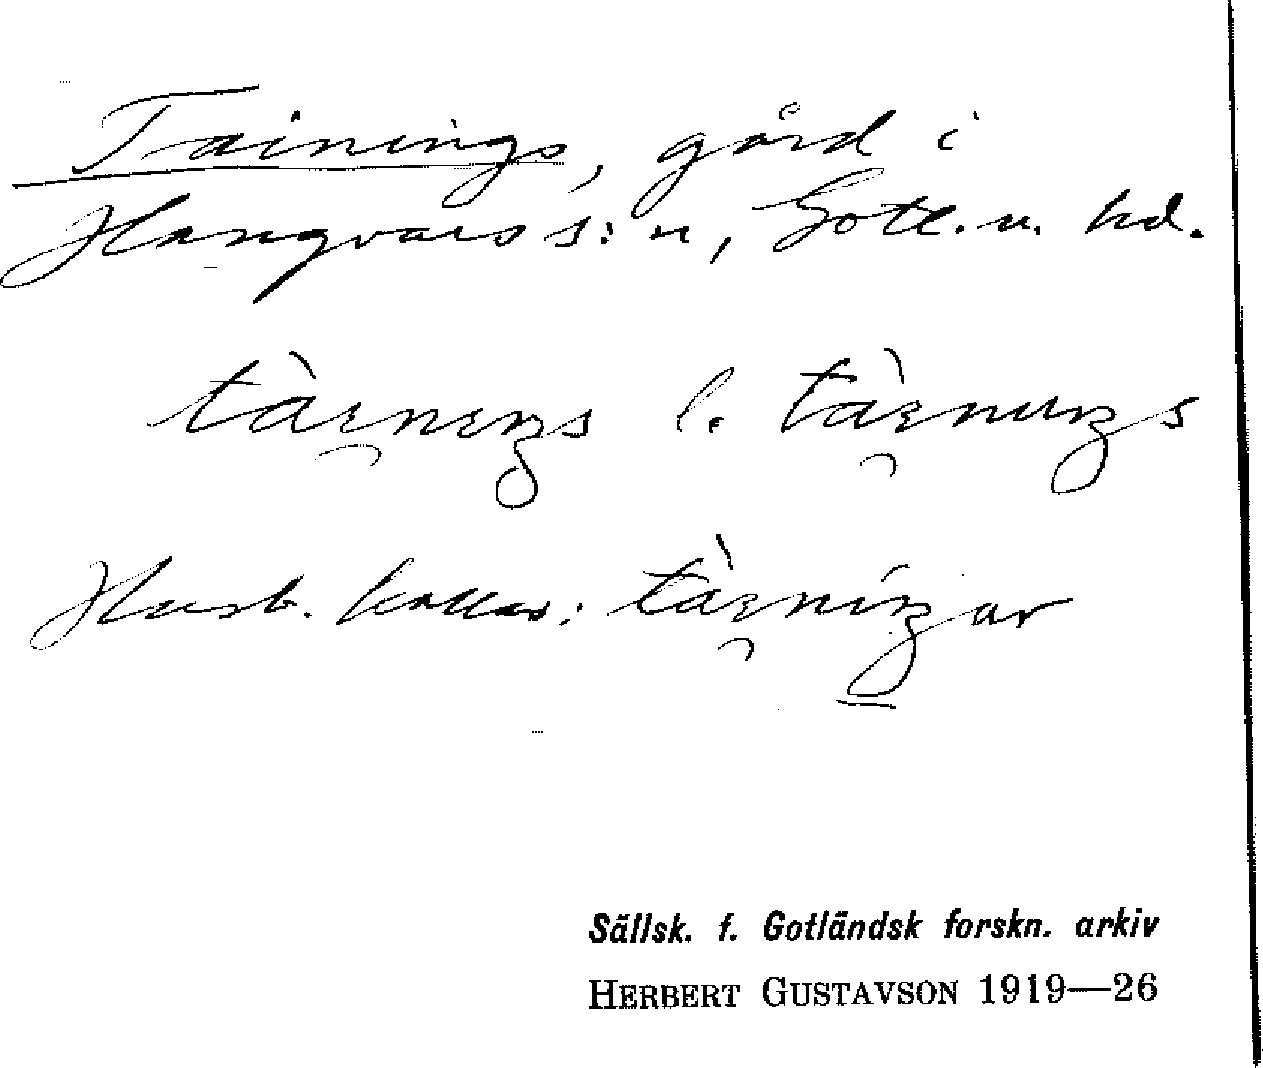 Tainings, gård i
Hangvars s:n, Gotl. n. hd.
tàɛ̯nɩŋs l. tàɛ̯nɩŋs
Husb. kallas: tàɛ̯nɩŋar
Sällsk. f. Gotländsk forskn. arkiv
HERBERT GUSTAVSON 1919—26